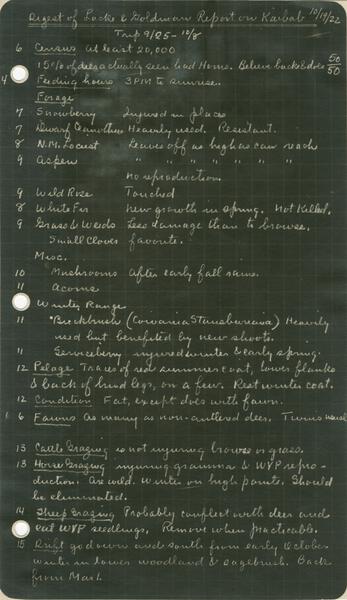 Digest of Locke & Goldman Report on Kaibab 10/19/22
Trip 9/25 - 10/8
6 Census At least 20,000
15% of does actually seen had Horns. Believe bucks & does 50/50
4 Feeding hours 3PM to sunrise.
Forage
7 Snowberry Injured in places
7 Dwarf Ceanothus Heavily used. Resistant.
8 N.M. Locust Leaves off as high as can reach
9 Aspen " " " " " " "
no reproduction.
9 Wild Rose Touched
8 White Fir New growth in spring. Not Killed.
9 Grass & Weeds Less damage than to browse.
Small Clover favorite.
Misc.
10 Mushrooms After early fall rains.
11 Acorns
Winter Range
11 Buckbrush (Cowania Stansburiana) Heavily
used but benefited by new shoots.
11 Serviceberry injured winter & early spring.
12 Pelage Traces of red summer coat, lower flanks
& back of hind legs, on a few. Rest winter coat.
12 Condition Fat, except does with fawn.
6 Fawns As many as non-antlered deer. Twins usual
13 Cattle Grazing is not injuring browse or grass.
13 Horse Grazing injuring gramma & WYP repro-
duction. Are wild. Winter on high points. Should
be eliminated.
14 Sheep Grazing Probably conflict with deer and
eat WYP seedlings. Remove when practicable.
15 Drift go down and south from early October
winter in lower woodland & sagebrush. Back
from Mar 1.